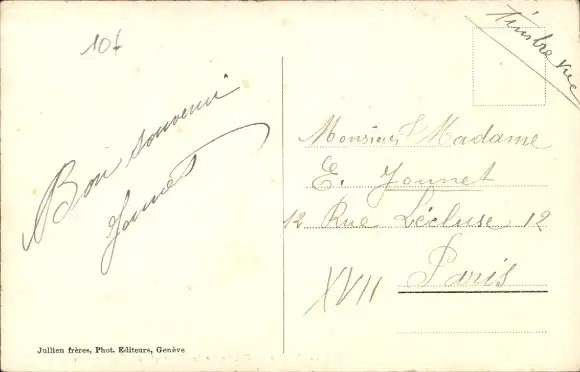 10f
Timbre vue
Bon souvenir
Jounet
Monsieur & Madame
E. Jounet
12 Rue Lécluse 12
Paris
XVII
Jullien frères, Phot. Editeurs, Genève